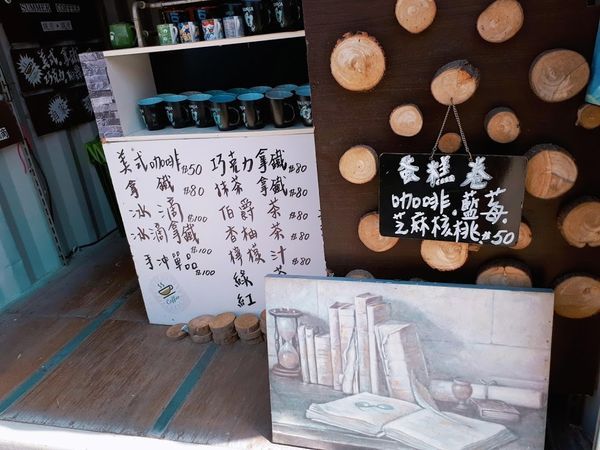 SUMMER
美式咖啡$50
拿鐵$80
冰滴$100
冰滴拿鐵$100
手沖單品$100
Coffee
巧克力拿鐵$80
抹茶拿鐵$80
伯爵茶$80
香柚茶$80
檸檬汁$80
綠茶
紅
蛋糕卷
咖啡.藍莓
芝麻核桃$50